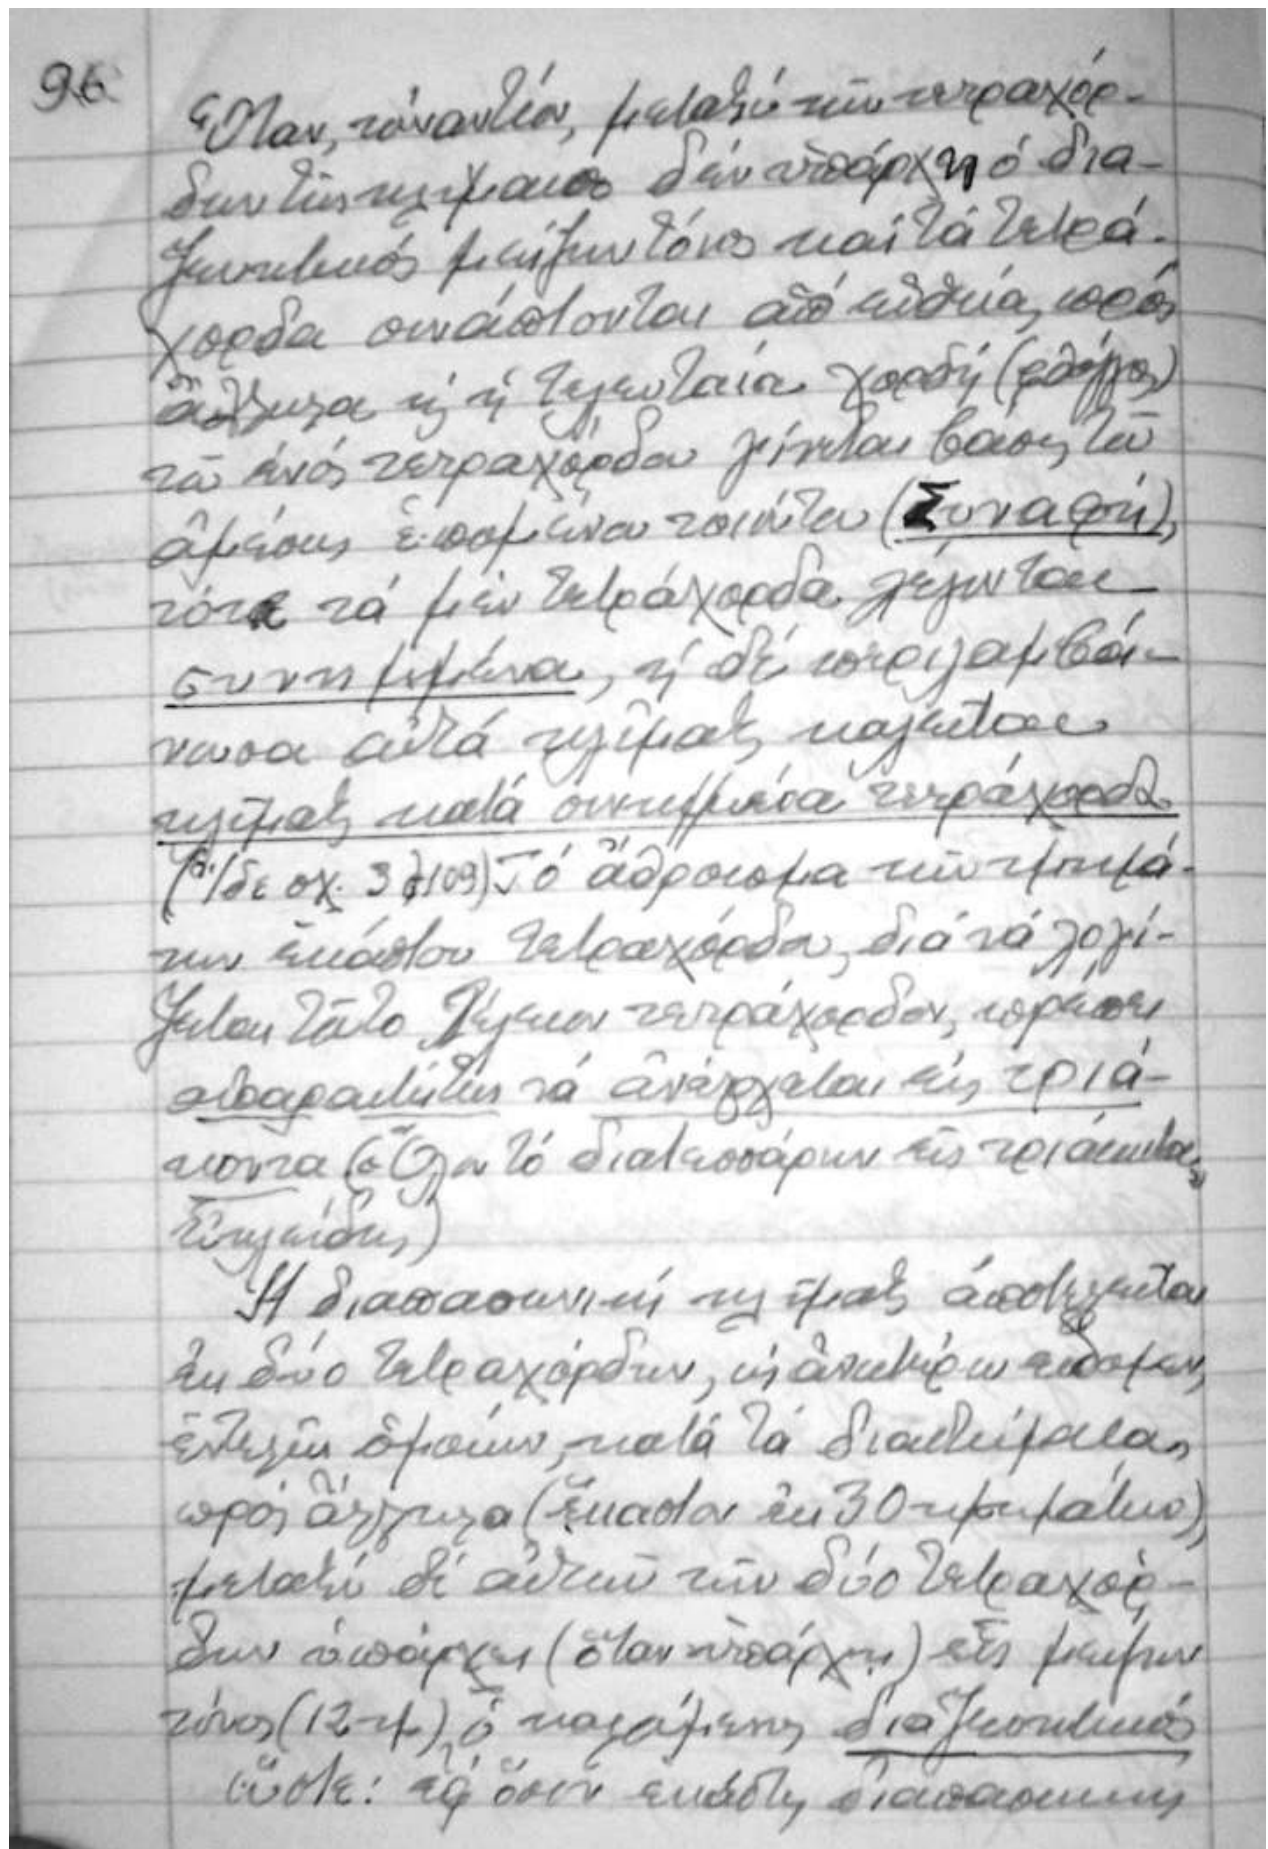 96
Ὅταν, τοὐναντίον, μεταξύ τῶν τετραχόρ-
δων τῆς κλίμακος δέν ὑπάρχῃ ὁ δια-
ζευκτικός μείζων τόνος καί τά τετρά-
χορδα συνάπτονται ἀπ' εὐθείας πρός
ἄλληλα ἤ ἡ τελευταία χορδή (φθόγγος)
τοῦ ἑνός τετραχόρδου γίνεται βάσις τοῦ
ἀμέσως ἑπομένου τοιούτου (Συναφή),
τότε τά μέν τετράχορδα λέγονται
συνημμένα, ἡ δέ περιλαμβά-
νουσα αὐτά κλῖμαξ καλεῖται
κλῖμαξ κατά συνημμένα τετράχορδα
(ἴδε σχ. 3 109) Τό ἄθροισμα τῶν τμημά-
των ἑκάστου τετραχόρδου, διά νά λογί-
ζεται τοῦτο τέλειον τετράχορδον, πρέπει
ἀπαραιτήτως νά ἀνέρχεται εἰς τριά-
κοντα («Ὅλον τό διατεσσάρων εἰς τριάκοντα»
Εὐκλείδης)
Ἡ διαπασωνική κλῖμαξ ἀποτελεῖται
ἐκ δύο τετραχόρδων, ὡς ἀνωτέρω εἴδομεν,
ἐντελῶς ὁμοίων, κατά τά διαστήματα,
πρός ἄλληλα (ἕκαστον ἐκ 30 τμημάτων),
μεταξύ δέ αὐτῶν τῶν δύο τετραχόρ-
δων ὑπάρχει (ὅταν ὑπάρχῃ) εἷς μείζων
τόνος (12 τμ), ὁ καλούμενος διαζευκτικός
ὥστε: ἐφ' ὅσον ἑκάστη διαπασωνική